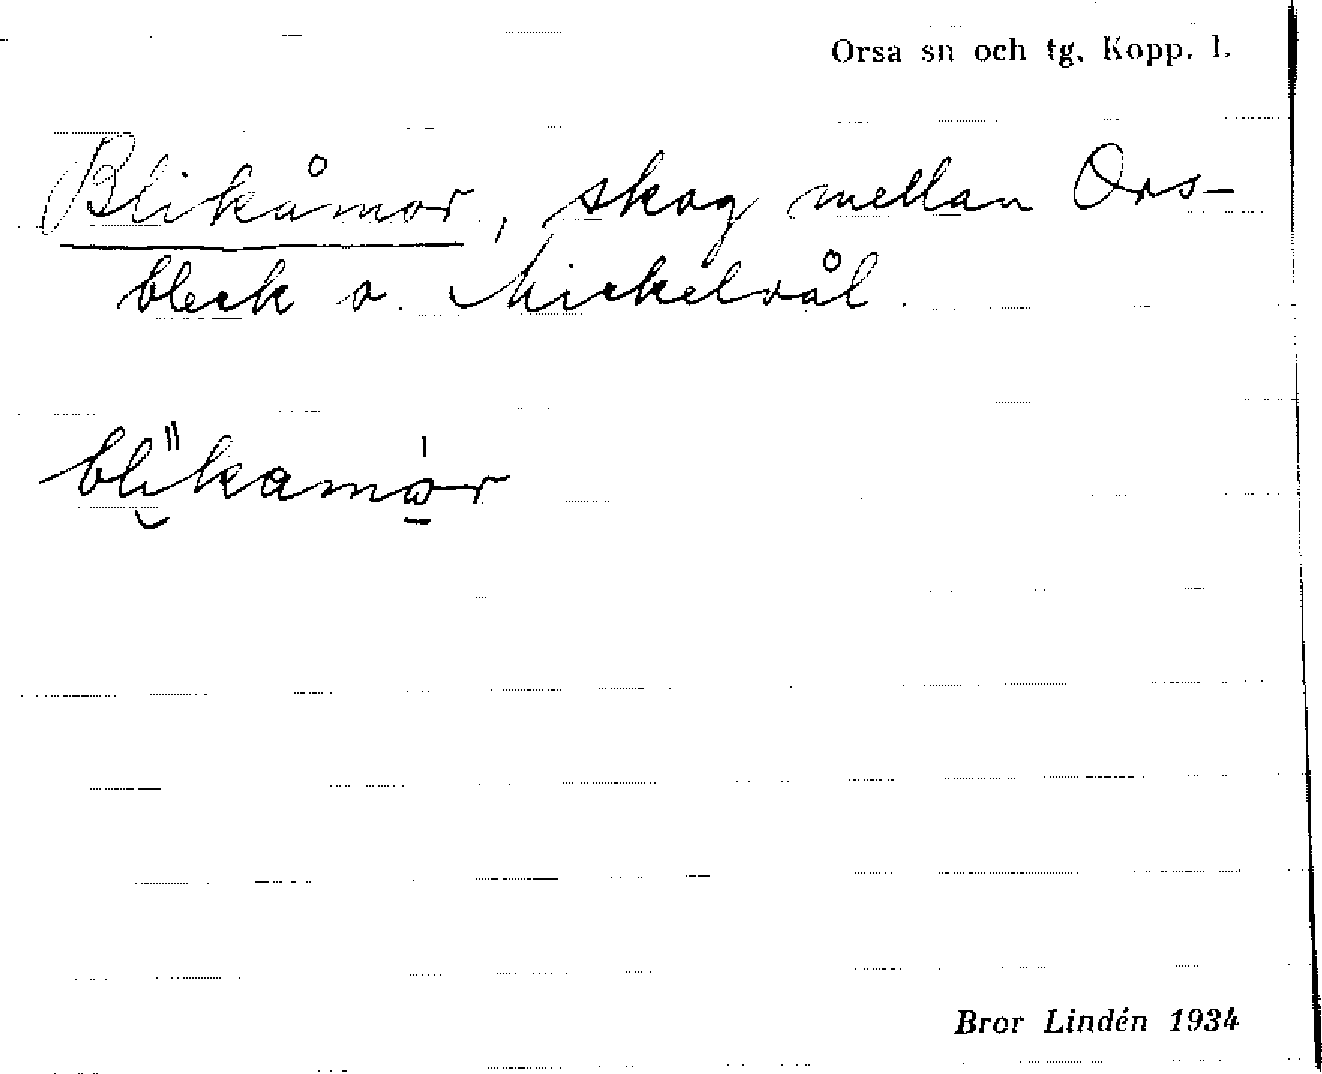 Orsa sn och tg, Kopp. l.
Blikåmor, skog mellan Ors-
bleck o. Mickelvål.
blikamor
Bror Lindén 1934